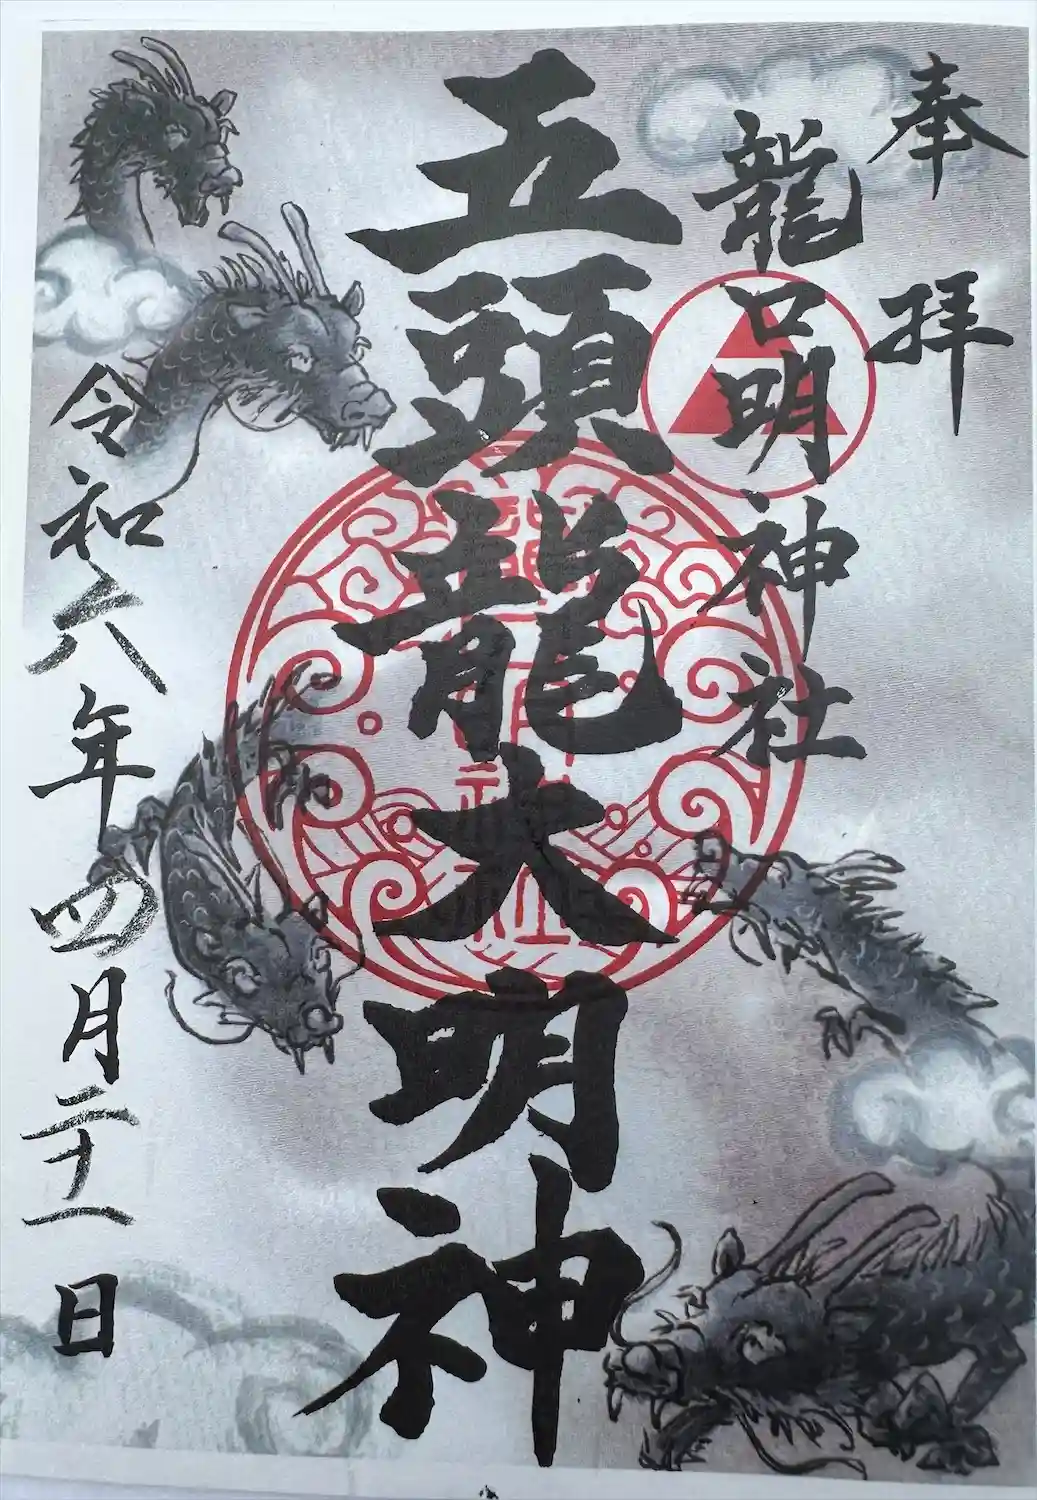 奉拝
龍口明神社
五頭龍大明神
令和六年四月二十一日